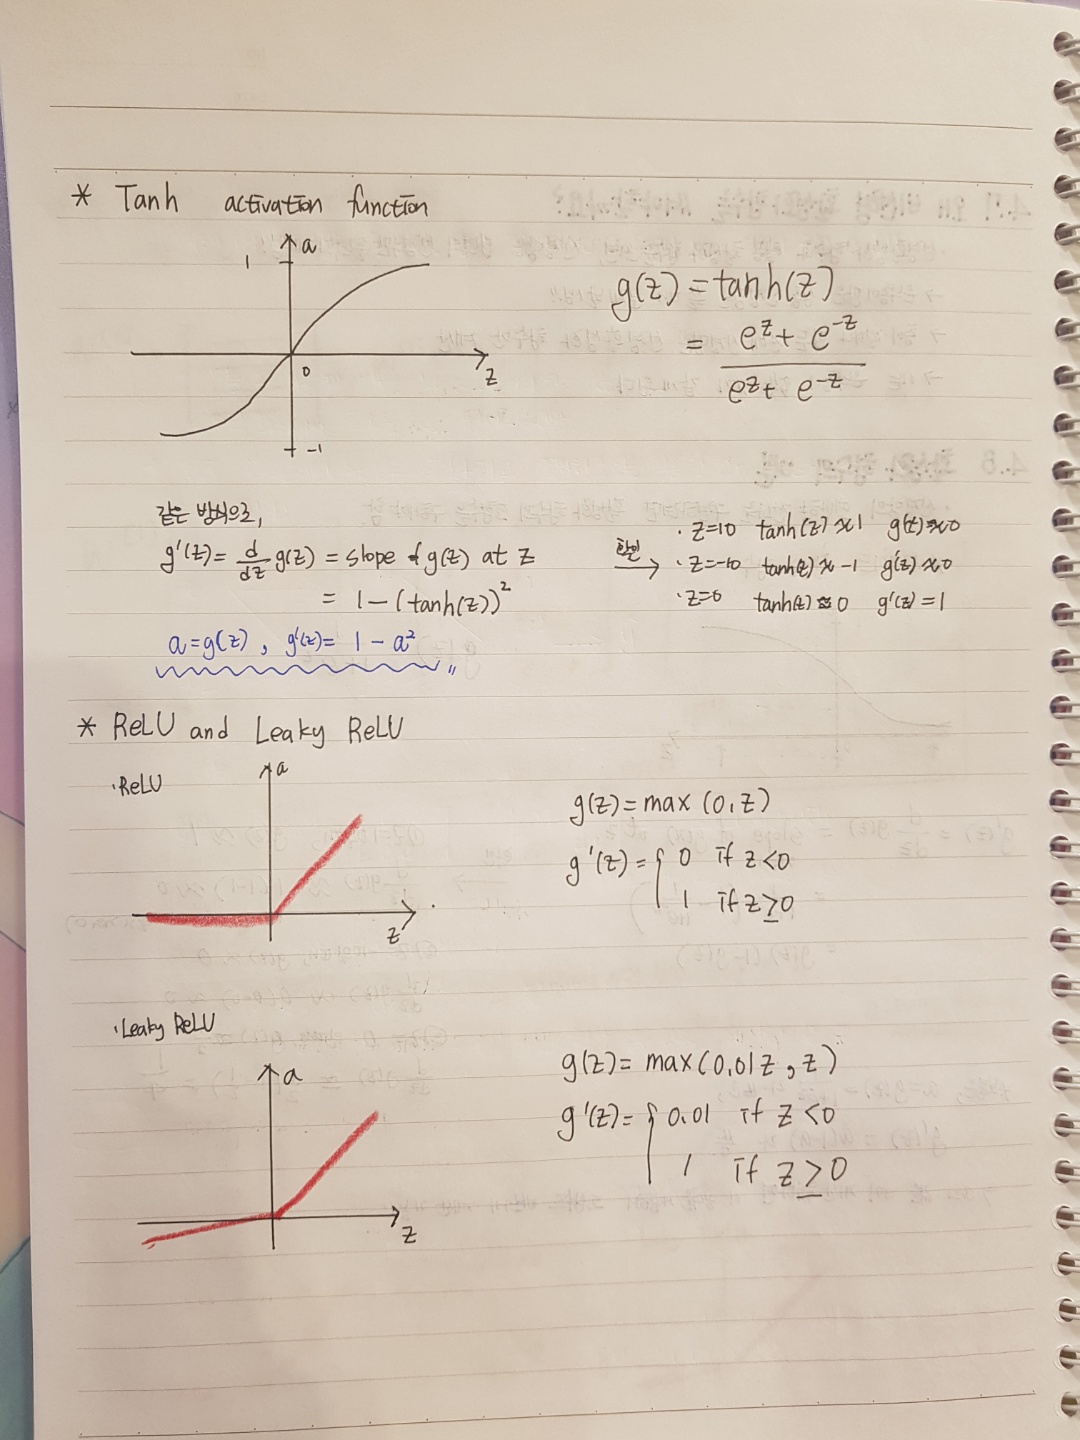 * Tanh activation function
a
1
0
z
-1
g(z) = tanh(z)
= e^z + e^-z
e^z + e^-z
같은 방식으로,
g'(z) = d/dz g(z) = slope of g(z) at z
= 1 - (tanh(z))^2
a = g(z), g'(z) = 1 - a^2 〃
확인 →
· z=10 tanh(z) ≈ 1 g'(z) ≈ 0
· z=-10 tanh(z) ≈ -1 g'(z) ≈ 0
· z=0 tanh(z) ≈ 0 g'(z) = 1
* ReLU and Leaky ReLU
· ReLU
a
z
g(z) = max (0, z)
g'(z) = { 0 if z < 0
1 if z ≥ 0
· Leaky ReLU
a
z
g(z) = max(0.01z, z)
g'(z) = { 0.01 if z < 0
1 if z ≥ 0